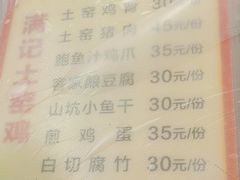 满记土窑鸡
土窑鸡
土窑猪肉 45元/份
鲍鱼汁鸡爪 35元/份
客家酿豆腐 30元/份
山坑小鱼干 30元/份
煎鸡蛋 35元/份
白切腐竹 30元/份